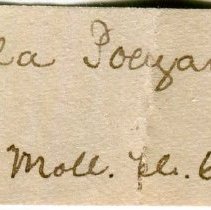 la Polyga
Moll. pl. 6